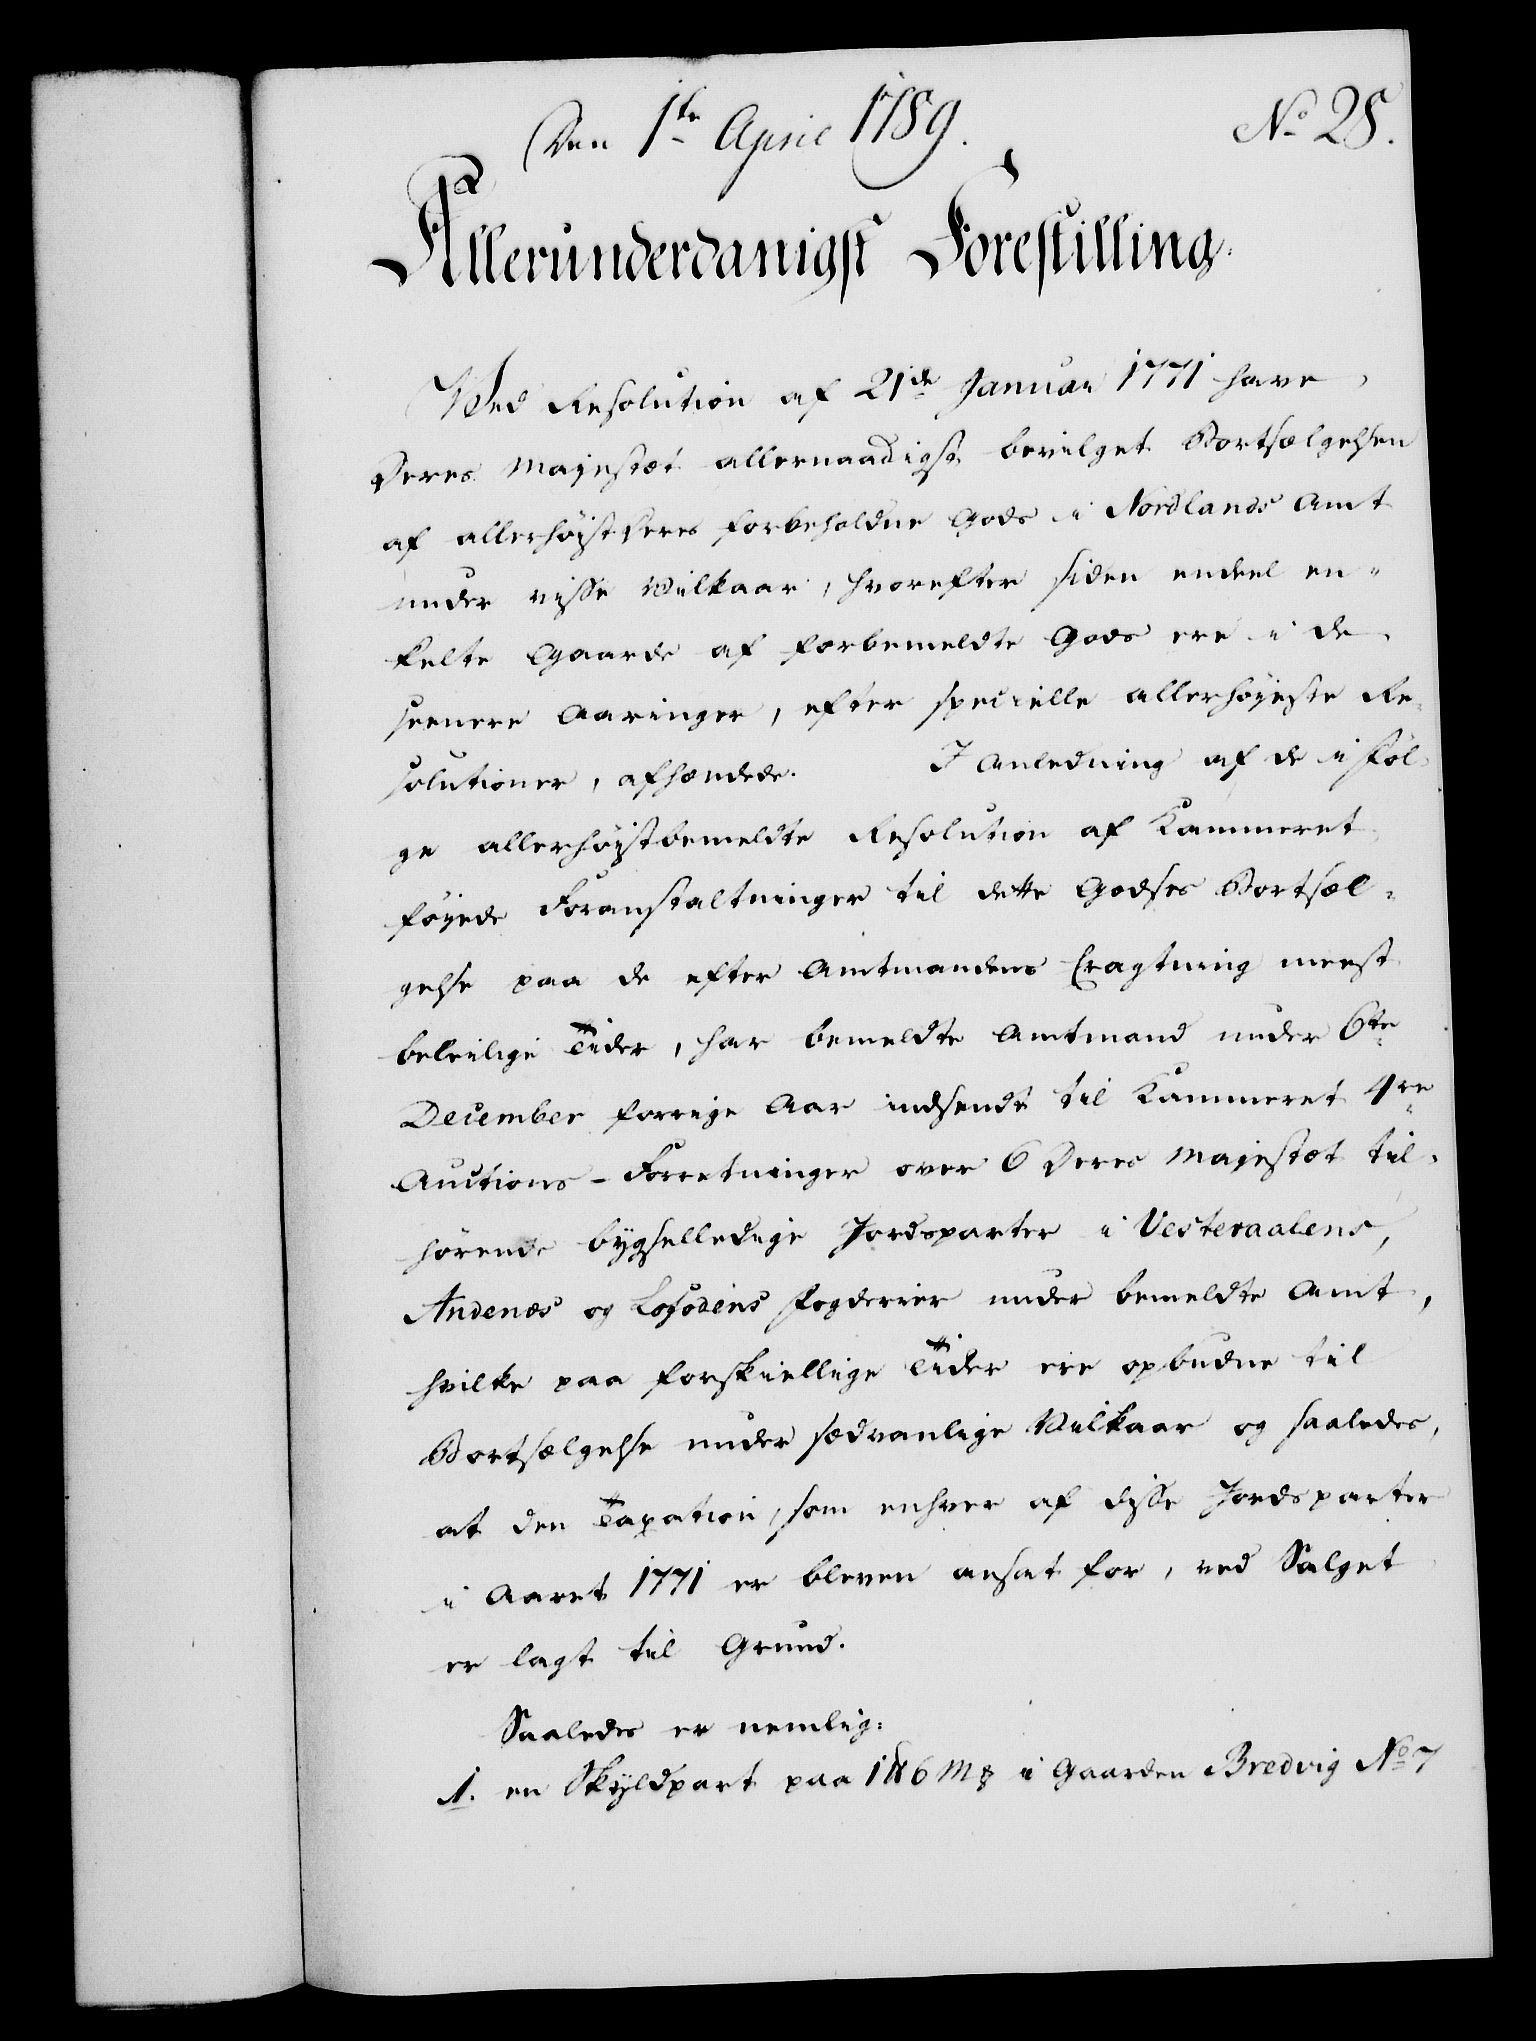 Den 1te April 1789.
No 28.
Allerunderdanigst Forestilling.
Ved Resolution af 21de Januar 1771 have
Deres Majestæt allernaadigst bevilget Bortsælgelsen
af allerhøist Deres forbeholdne Gods i Nordlands Amt
under visse Vilkaar, hvorefter siden endeel en-
kelte Gaarde af forbemeldte Gods ere i de
seenere Aaringer, efter specielle allerhøieste Re-
solutioner, afhændede. I Anledning af de iføl-
ge allerhøistbemeldte Resolution af Kammeret
føiede Foranstaltninger til dette Godses Bortsæl-
gelse paa de efter Amtmandens Eragtning meest
beleilige Tider, har bemeldte Amtmand under 6te
December forrige Aar indsendt til Kammeret 4re
Auctions-Forretninger over 6 Deres Majestæt til-
hørende bygselledige Jordsparter i Vesteraalens,
Andenæs og Lofodens Fogderier under bemeldte Amt,
hvilke paa forskiellige Tider ere opbudne til
Bortsælgelse under sædvanlige Vilkaar og saaledes,
at den Taxation, som enhver af disse Jordsparter
i Aaret 1771 er bleven ansat for, ved Salget
er lagt til Grund.
Saaledes er nemlig:
1. en Skyldpart paa 1 6 i Gaarden Bredvig No 7